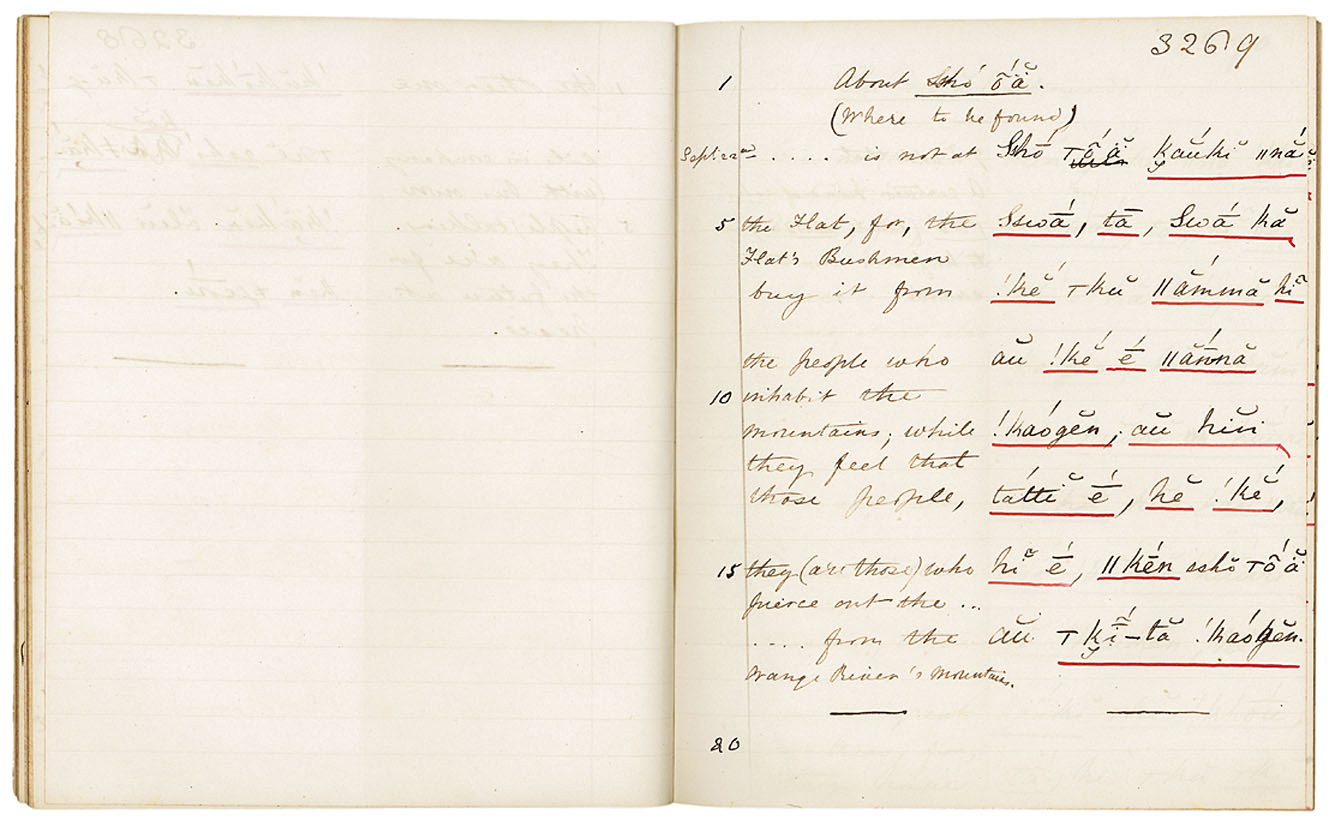 3269
1 About Sshó ṓä̆.
(Where to be found)
Sept. 22nd .... is not at Sshō ⊤ṓä̆ k̮áŭkĭ ǁnắ
5 the Flat, for, the Sswā́, tā, Swā́ kă
Flat's Bushmen
buy it from !kĕ́ ⊤kŭ ǁắmmă hĭ
the people who aŭ !kĕ́ ḗ ǁắnnă
10 inhabit the
mountains; while !kaógĕn, aŭ hĭŭ
they feel that
those people, táttĭ ḗ, hĕ !kĕ́,
15 they (are those) who hĭ ḗ, ǁkḗn sshŏ ⊤ṓä̆
pierce out the ...
.... from the aŭ ⊤k̮ī́-tă !kaógĕn.
Orange River's Mountains.
20